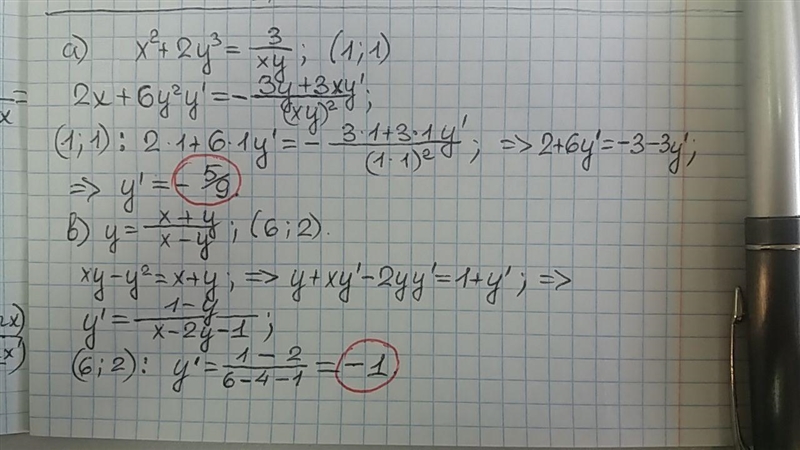 а) x²+2y³= 3/xy; (1;1)
x =
2x+6y²y'=- 3y+3xy'/(xy)²;
(1;1): 2·1+6·1y'=- 3·1+3·1y'/(1·1)²; => 2+6y'=-3-3y';
=> y'=- 5/9.
в) y= x+y/x-y; (6;2).
xy-y²=x+y; => y+xy'-2yy'=1+y'; =>
y'= 1-y/x-2y-1;
(6;2): y'= 1-2/6-4-1 = -1